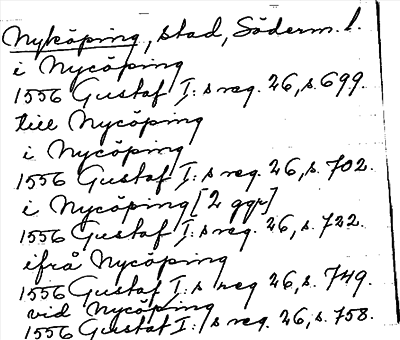 Nyköping, stad, Söderm. l.
i Nycöping
1556 Gustaf I:s reg. 26, s. 699.
till Nycöping
i Nycöping
1556 Gustaf I:s reg. 26, s. 702.
i Nycöping [2 ggr]
1556 Gustaf I:s reg. 26, s. 722.
ifrå Nycöping
1556 Gustaf I:s reg. 26, s. 749.
vid Nycöping
1556 Gustaf I:s reg. 26, s. 758.